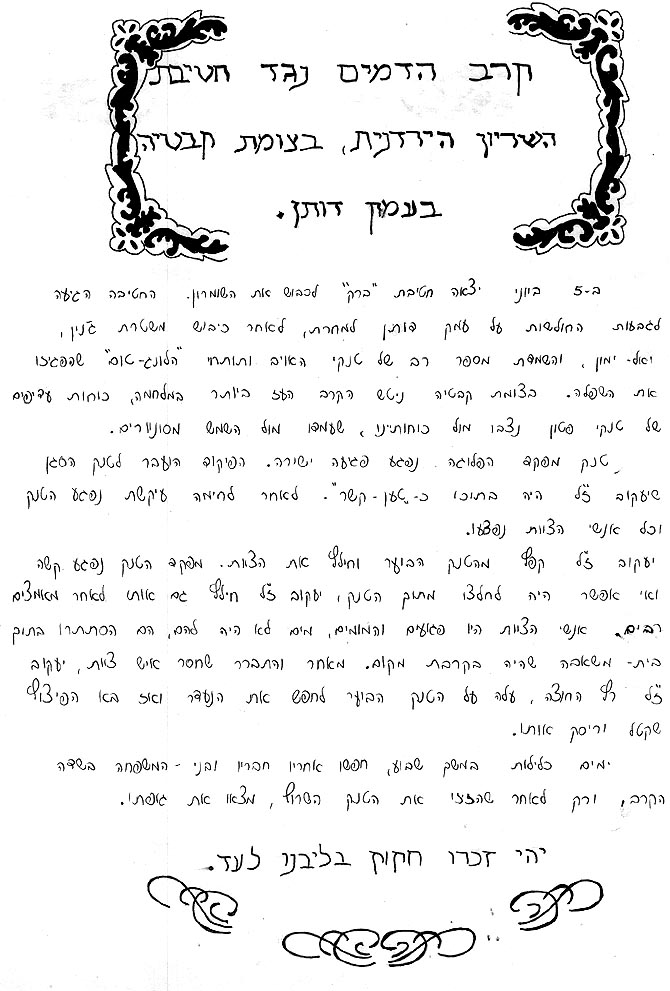 קרב הדמים נגד חטיבת
השריון הירדנית, בצומת קבטיה
בעמק דותן.
ב-5 ביוני יצאה חטיבת "ברק" לכבוש את השומרון. החטיבה הגיעה
לגבעות החולשות על עמק דותן למחרת, לאחר כיבוש משטרת ג'נין,
ואל-ימון, והשמדת מספר רב של טנקי האויב ותותחי "הלונג-טום" שהפגיזו
את השפלה. בצומת קבטיה ניטש הקרב העז ביותר במלחמה, כוחות עדיפים
של טנקי פטון נצבו מול כוחותינו, שעמדו מול השמש מסונוורים.
טנק מפקד הפלוגה נפגע פגיעה ישירה. הפיקוד הועבר לטנק הסגן
שיעקוב ז"ל היה בתוכו כ-"טען-קשר". לאחר לחימה עיקשת נפגע הטנק
וכל אנשי הצוות נפצעו.
יעקוב ז"ל קפץ מהטנק הבוער וחילץ את הצוות. מפקד הטנק נפגע קשה
ואי אפשר היה לחלצו מתוך הטנק, יעקוב ז"ל חילץ גם אותו לאחר מאמצים
רבים. אנשי הצוות היו פגועים והמומים, מים לא היה להם, הם הסתתרו בתוך
בית-משאבה שהיה בקרבת מקום. מאחר והתברר שחסר איש צוות, יעקוב
ז"ל רץ החוצה, עלה על הטנק הבוער לחפש את הנעדר ואז בא הפיצוץ
שקטל וריסק אותו.
ימים כלילות במשך שבוע, חפשו אחריו חבריו ובני-המשפחה בשדה
הקרב, ורק לאחר שהזיזו את הטנק השרוף, מצאו את גופתו.
יהי זכרו חקוק בליבנו לעד.